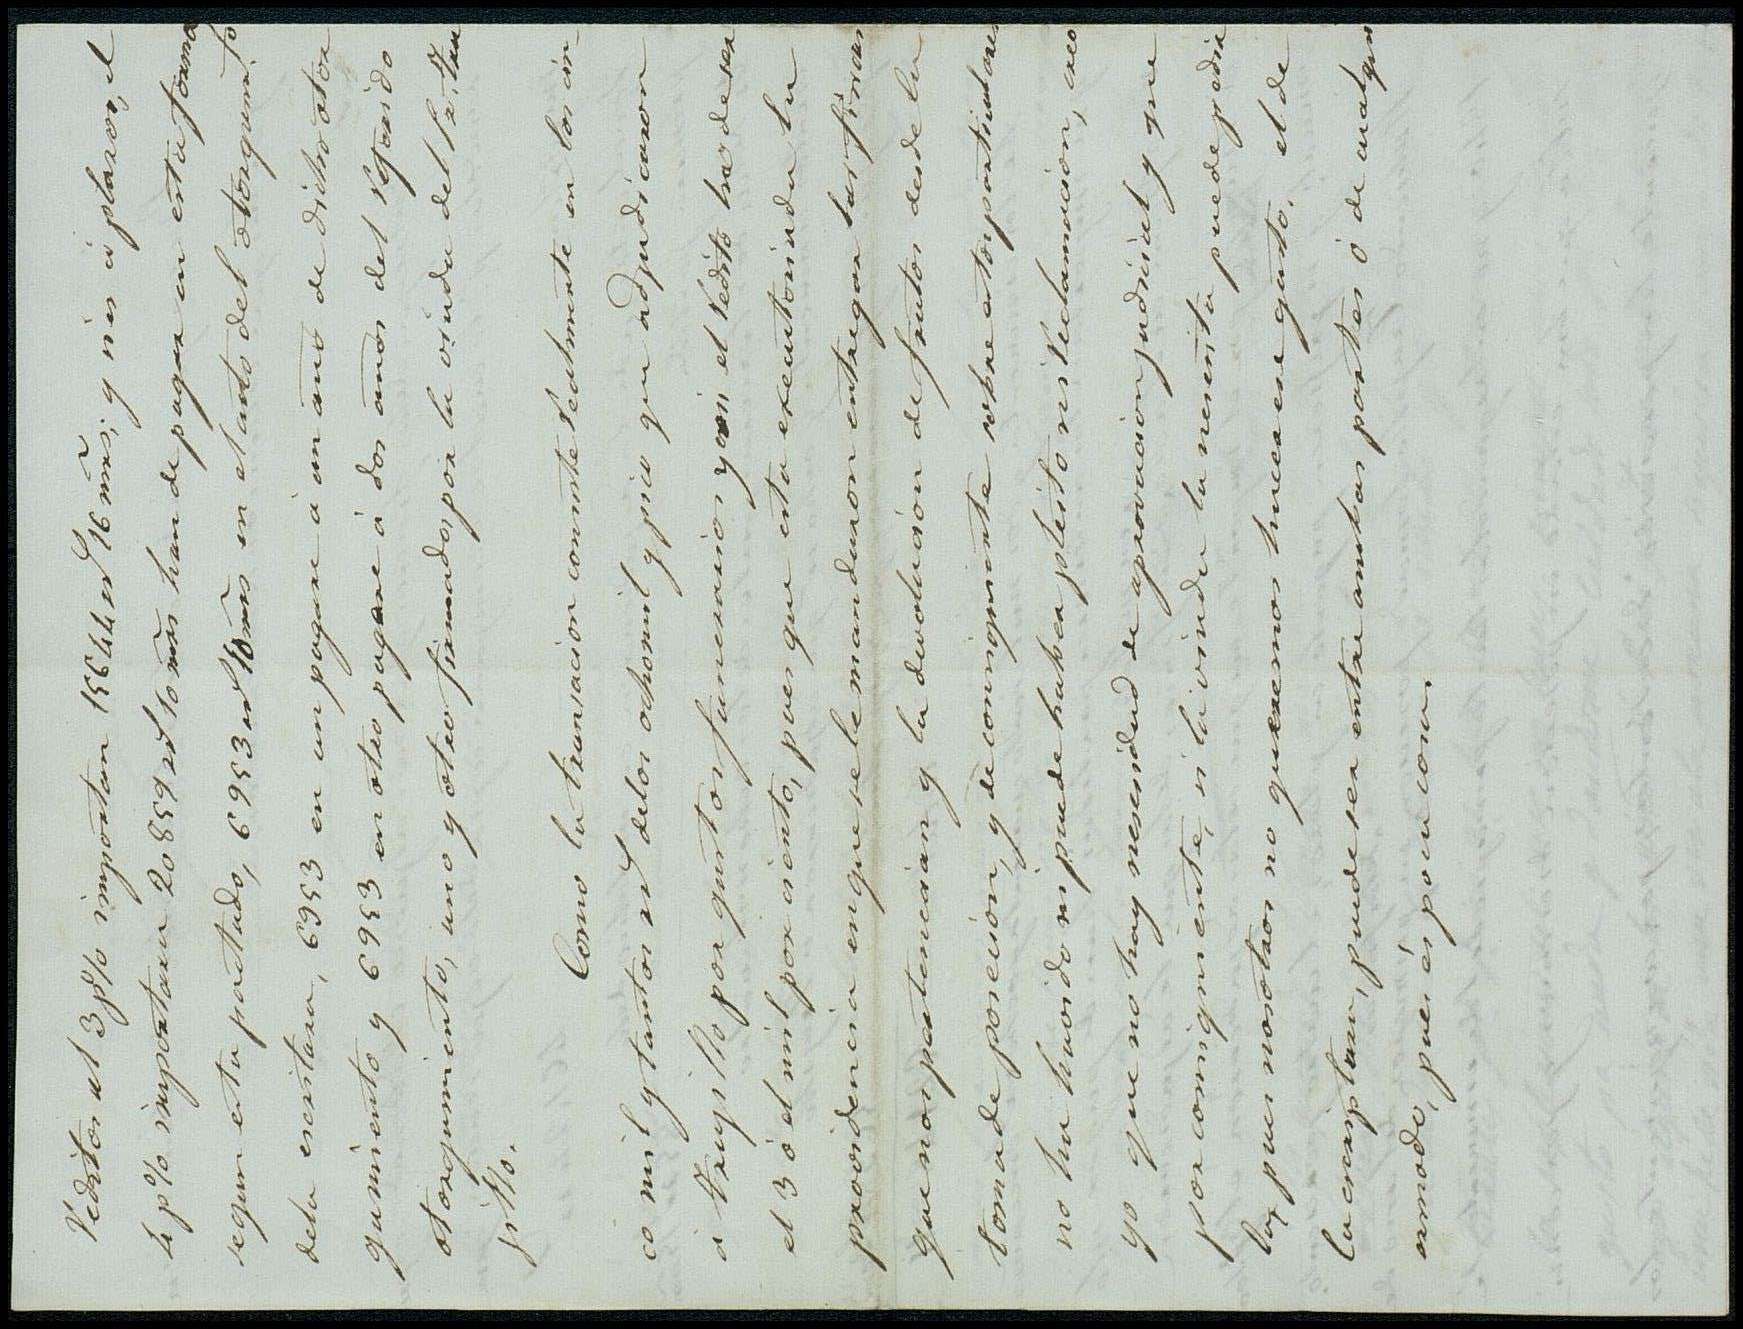 Reditos al 3 p% importan 15644 rs 16 mrs; y si es á plazos, el
4 p% importara 20859 rs 10 mrs han de pagar en esta forma
segun esta pactado, 6953 rs 10 mrs en el acto del otorgamto
dela escritura, 6953 en un pagare á un año de dicho otor
gamiento y 6953 en otro pagare á dos años del referido
otorgamiento, uno y otro firmados por la viuda del Sr. Tru
jillo.
Como la transacion consiste realmente en los cin
co mil y tantos rs delos ocho mil y pico que adjudicaron
a Trujillo por gastos funerarios y en el redito ha de ser
el 3 ó el mil por ciento, pues que esta executoriada la
providencia en que se le mandaron entregar las fincas
que nos pertenecian y la devolucion de frutos desde la
toma de posesion, y de consiguiente sobre estos particulares
no ha havido ni puede haber pleito ni reclamacion, creo
yo que no hay nesesidad de aprovacion judicial y que
por consiguiente, si la viuda la nesesita puede pedir
la, pues nosotros no queremos hacer ese gasto. el de
la escriptura, puede ser entre ambas partes ó de cualquier
modo, pues es poca cosa.